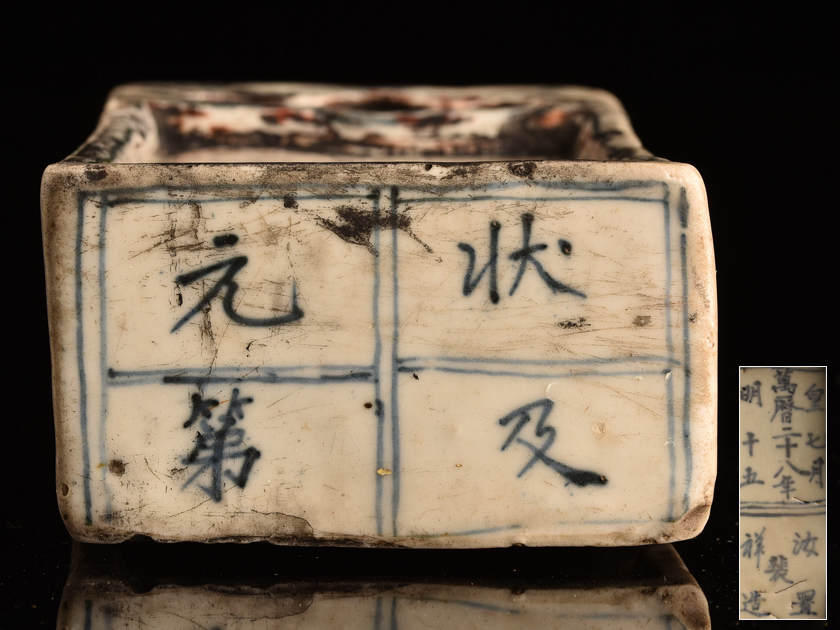 状元
及第
皇明
萬曆二十八年
七月
十五
汝置
祥造